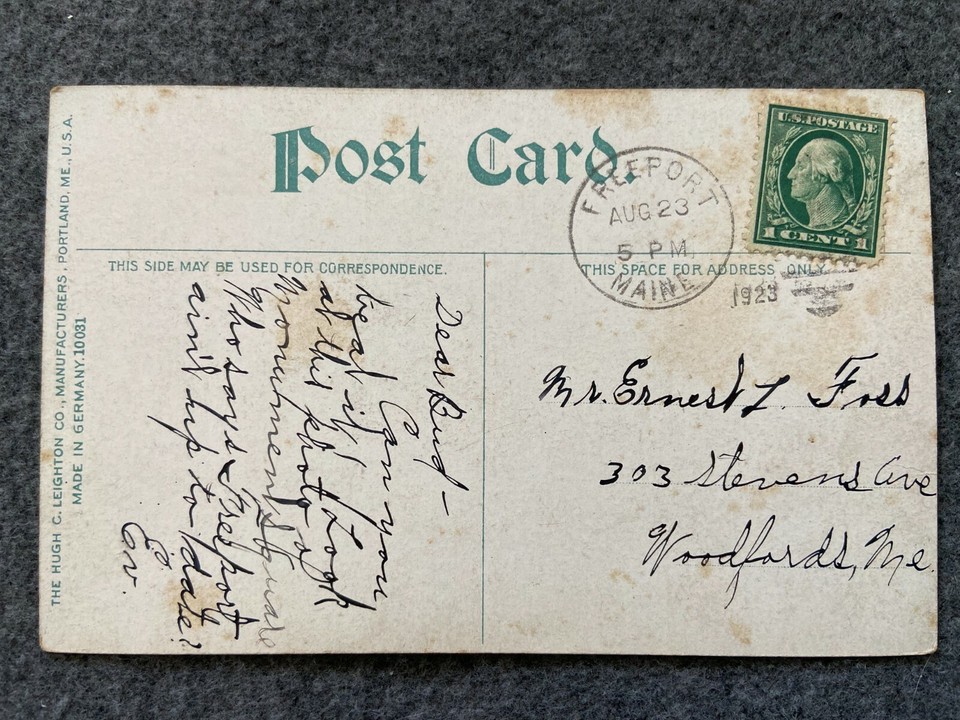 THE HUGH C. LEIGHTON CO., MANUFACTURERS, PORTLAND, ME., U.S.A.
MADE IN GERMANY. 10081
Post Card.
FREEPORT
AUG 23
5 PM
MAINE
1923
U.S. POSTAGE
1 CENT 1
THIS SIDE MAY BE USED FOR CORRESPONDENCE.
THIS SPACE FOR ADDRESS ONLY.
Dear Bud –
Can you
beat it? Look
at this photo of
Monument Square
Who says Freeport
ain't up to date?
Mr. Ernest L. Foss
303 Stevens Ave
Woodfords, Me.